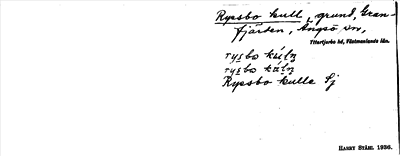 Ryssbo kull, grund, Gran-
fjärden, Ängsö sn,
Yttertjurbo hd, Västmanlands län.
rysbo
rysbo
Ryssbo kulle Sj
HARRY STÅHL 1936.